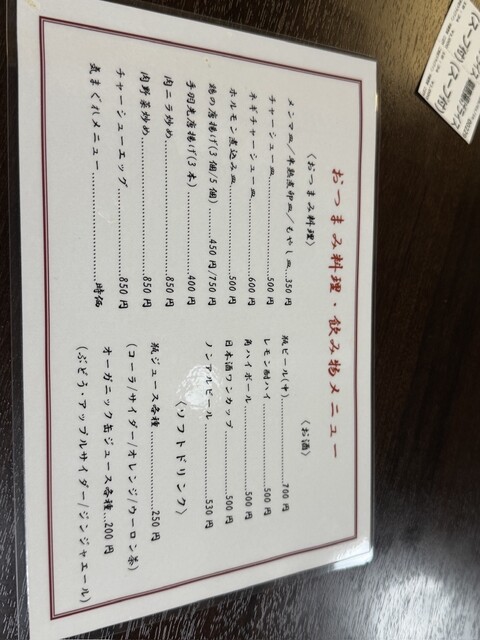 おつまみ料理・飲み物メニュー
〈おつまみ料理〉
メンマ皿/半熟煮卵皿/もやし皿…350円
チャーシュー皿……500円
ネギチャーシュー皿……600円
ホルモン煮込み皿……500円
鶏の唐揚げ(3個/5個)……450円/750円
手羽先唐揚げ(3本)……400円
肉ニラ炒め……850円
肉野菜炒め……850円
チャーシューエッグ……850円
気まぐれメニュー……時価
〈お酒〉
瓶ビール(中)……700円
レモン酎ハイ……500円
角ハイボール……500円
日本酒ワンカップ……500円
ノンアルビール……530円
〈ソフトドリンク〉
瓶ジュース各種……250円
(コーラ/サイダー/オレンジ/ウーロン茶)
オーガニック缶ジュース各種…200円
(ぶどう・アップルサイダー/ジンジャエール)